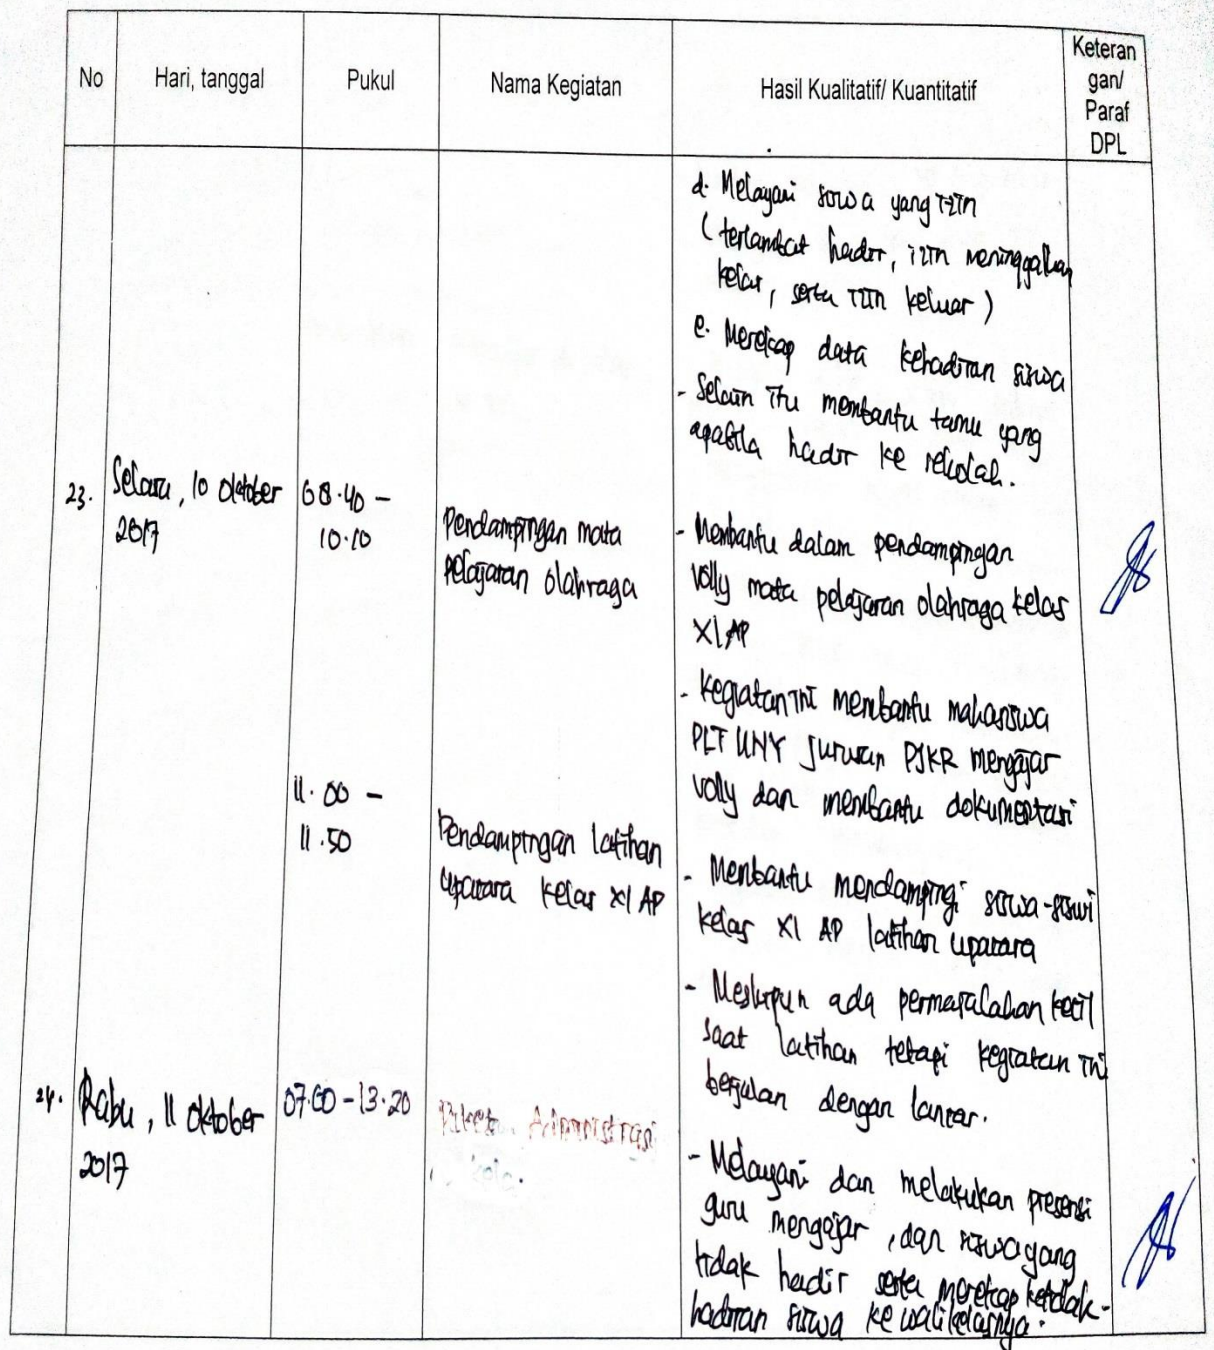 No
Hari, tanggal
Pukul
Nama Kegiatan
Hasil Kualitatif/ Kuantitatif
Keteran
gan/
Paraf
DPL
d. Melayani siswa yang izin
(terlambat hadir, izin meninggalkan
kelas, serta izin keluar)
e. Merekap data kehadiran siswa
- Selain itu membantu tamu yang
apabila hadir ke sekolah.
23.
Selasa, 10 Oktober
2017
08.40 -
10.10
Pendampingan mata
pelajaran olahraga
- Membantu dalam pendampingan
volly mata pelajaran olahraga kelas
XI AP
- Kegiatan ini membantu mahasiswa
PLT UNY Jurusan PJKR mengajar
volly dan membantu dokumentasi
11.00 -
11.50
Pendampingan latihan
upacara kelas XI AP
- Membantu mendampingi siswa-siswi
kelas XI AP latihan upacara
- Meskipun ada permasalahan kecil
saat latihan tetapi kegiatan ini
berjalan dengan lancar.
24.
Rabu, 11 Oktober
2017
07.00 - 13.20
Piket Administrasi
- Melayani dan melakukan presensi
guru mengajar, dan siswa yang
tidak hadir serta merekap ketidak-
hadiran siswa ke walikelasnya.